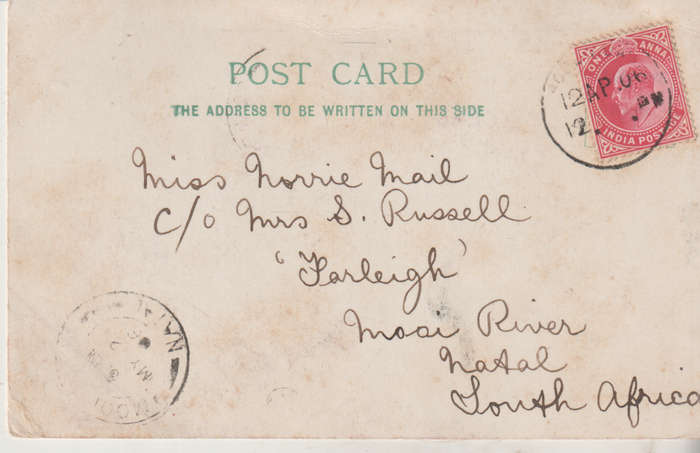 POST CARD
THE ADDRESS TO BE WRITTEN ON THIS SIDE
ONE ANNA
INDIA POSTAGE
12 AP. 06
12. PM
Miss Norrie Mail
c/o Mrs S. Russell
'Farleigh'
Mooi River
Natal
South Africa
NATAL
MOOI
MY